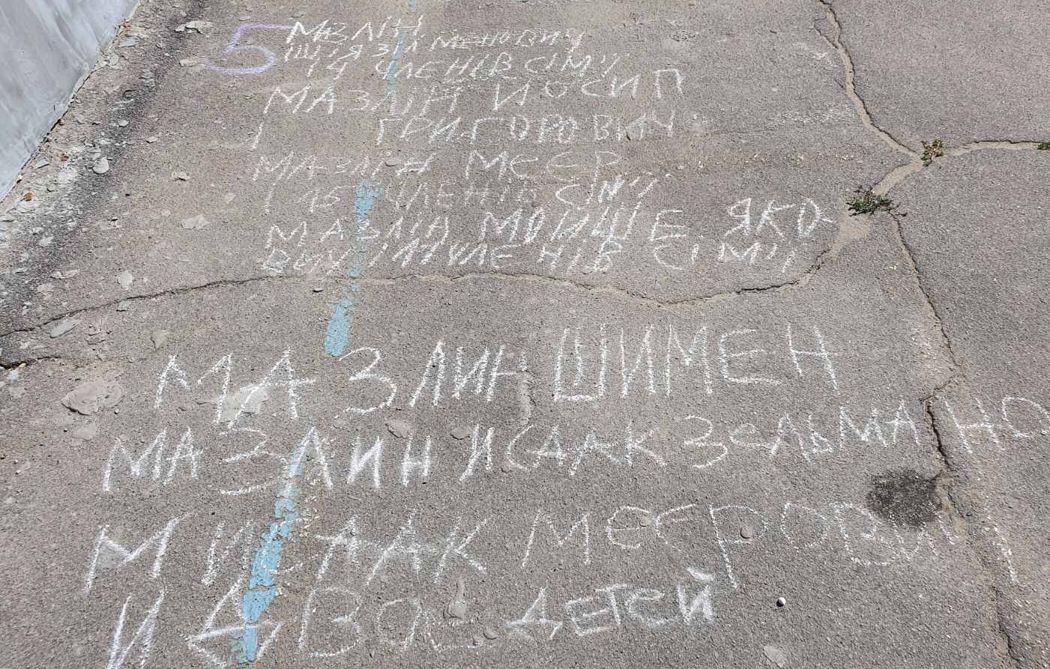 5 МАЗЛІН
ШАЯ ЗІЛМЕНОВИЧ
14 ЧЛЕНІВ СІМ'Ї
МАЗЛІН ЙОСИП
ГРИГОРОВИЧ
МАЗЛІН МЕЄР
ЧЛЕНІВ СІМ'Ї
МАЗЛІН МОЙШЕ ЯКО-
ВИЧ ЧЛЕНІВ СІМ'Ї
МАЗЛИН ШИМЕН
МАЗЛИН ИСААК ЗЕЛЬМАНО
М ИСААК МЕЄРОВИЧ
И ДВОЕ ДЕТЕЙ